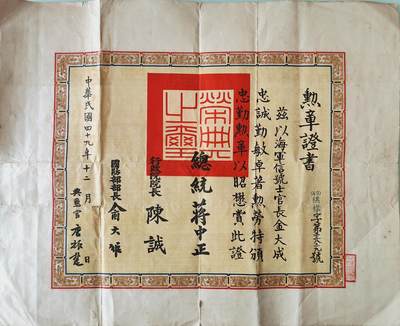 勲章證書
字第號
茲以海軍信號士官長金大成
忠誠勤敏卓著勲勞特頒
忠勤勲章以昭懋賞此證
榮典之璽
總統 蔣中正
行政院院長 陳誠
國防部部長 俞大維
典璽官
中華民國四十九年十二月 日